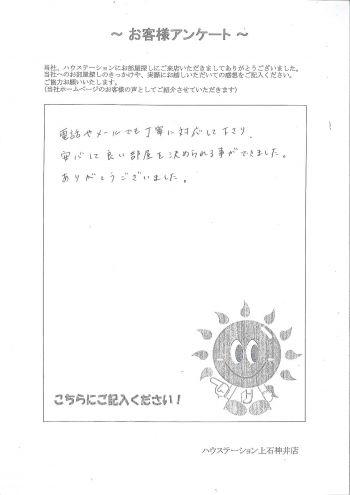 ～ お客様アンケート ～
当社、ハウスステーションにお部屋探しにご来店いただきましてありがとうございました。
当社へのお部屋探しのきっかけや、実際にお越しいただいての感想をご記入ください。
ご協力お願いいたします。
(当社ホームページのお客様の声としてご紹介させていただきます)
電話やメールでも丁寧に対応して下さり、
安心して良い部屋を決められる事ができました。
ありがとうございました。
こちらにご記入ください！
ハウスステーション上石神井店